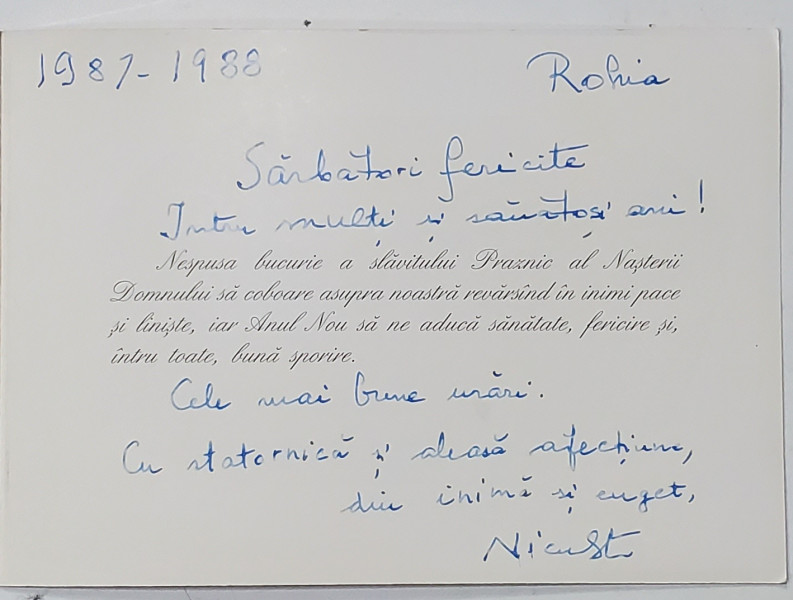 1987-1988 Rohia
Sărbători fericite
Întru mulți și sănătoși ani!
Nespusa bucurie a slăvitului Praznic al Nașterii
Domnului să coboare asupra noastră revărsînd în inimi pace
și liniște, iar Anul Nou să ne aducă sănătate, fericire și,
întru toate, bună sporire.
Cele mai bune urări.
Cu statornică și aleasă afecțiune,
din inimă și cuget,
NicuSt